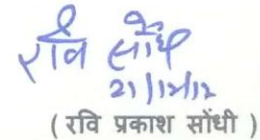 रवि सोंधी
21/12/12
( रवि प्रकाश सोंधी )